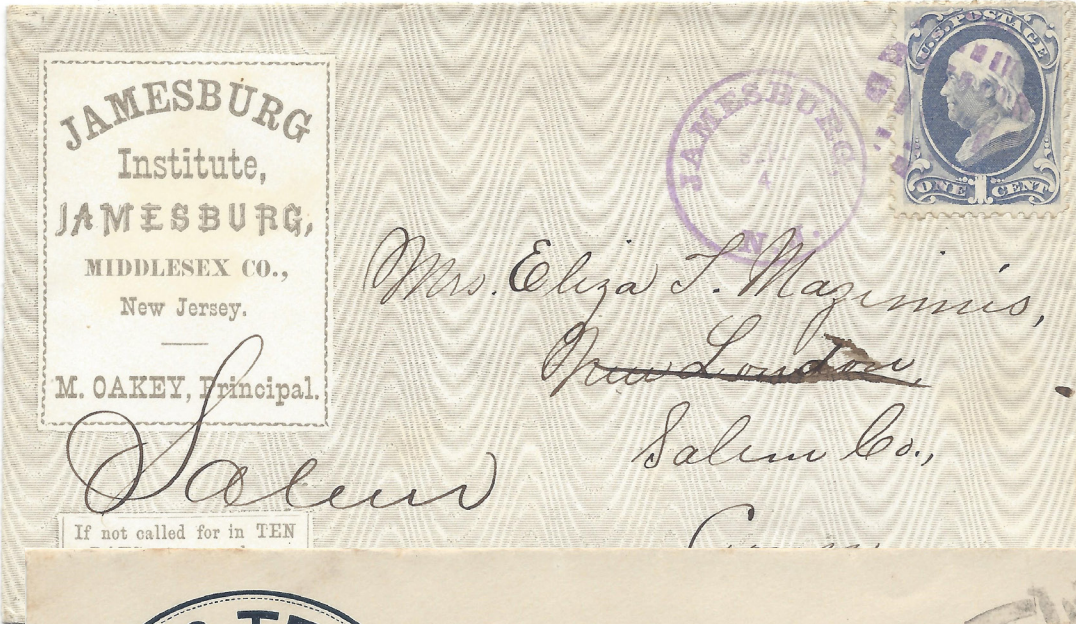 JAMESBURG
Institute,
JAMESBURG,
MIDDLESEX CO.,
New Jersey.
M. OAKEY, Principal.
Salem
If not called for in TEN
JAMESBURG,
4
N. J.
U.S. POSTAGE
ONE 1 CENT
Mrs. Eliza T. Maginnis,
New London,
Salem Co.,